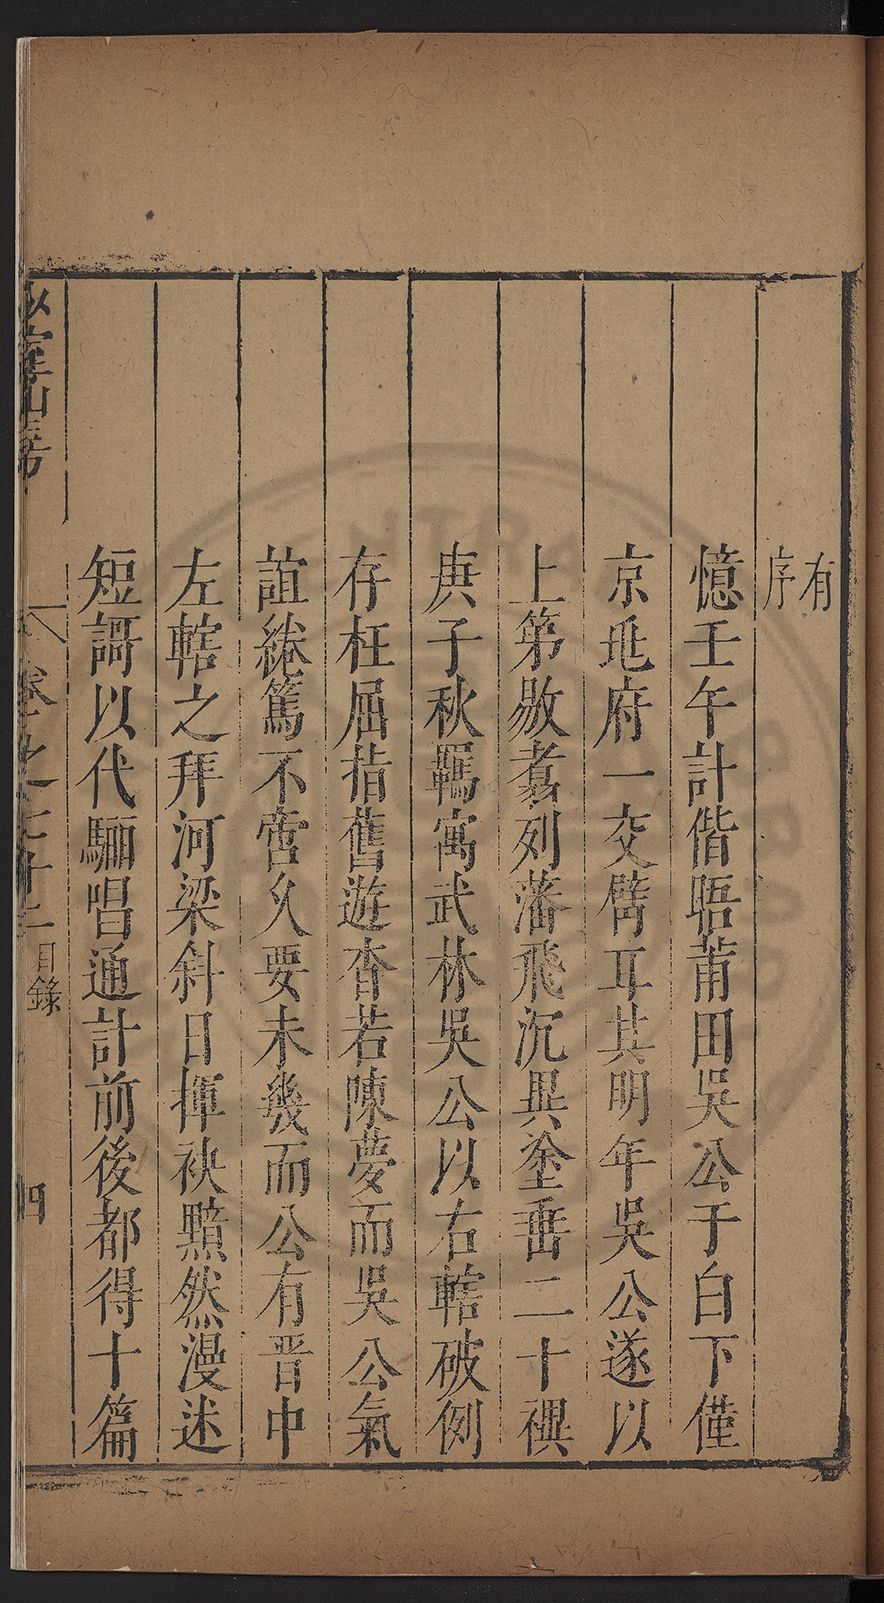 有序
憶壬午計偕晤莆田吳公于白下僅
京兆府一交臂耳其明年吳公遂以
上第敭歷列藩飛沉異塗垂二十禩
庚子秋羈寓武林吳公以右轄破例
存枉屈指舊遊杳若陳夢而吳公氣
誼綣篤不啻久要未幾而公有晋中
左轄之拜河梁斜日揮袂黯然漫述
短謌以代驪唱通計前後都得十篇
少室山房
卷之七十二目錄
四